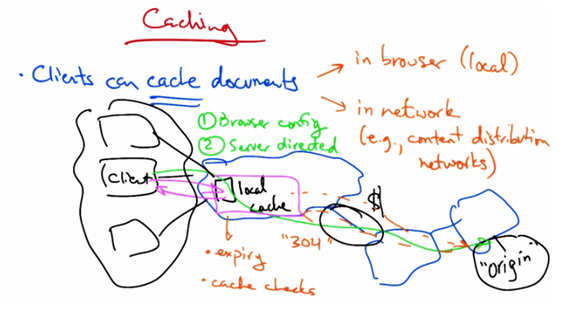 Caching
• Clients can cache documents
in browser (local)
in network
(e.g., content distribution
networks)
① Browser config
② Server directed
Client
local
cache
$
"304"
"Origin"
• expiry
• cache checks